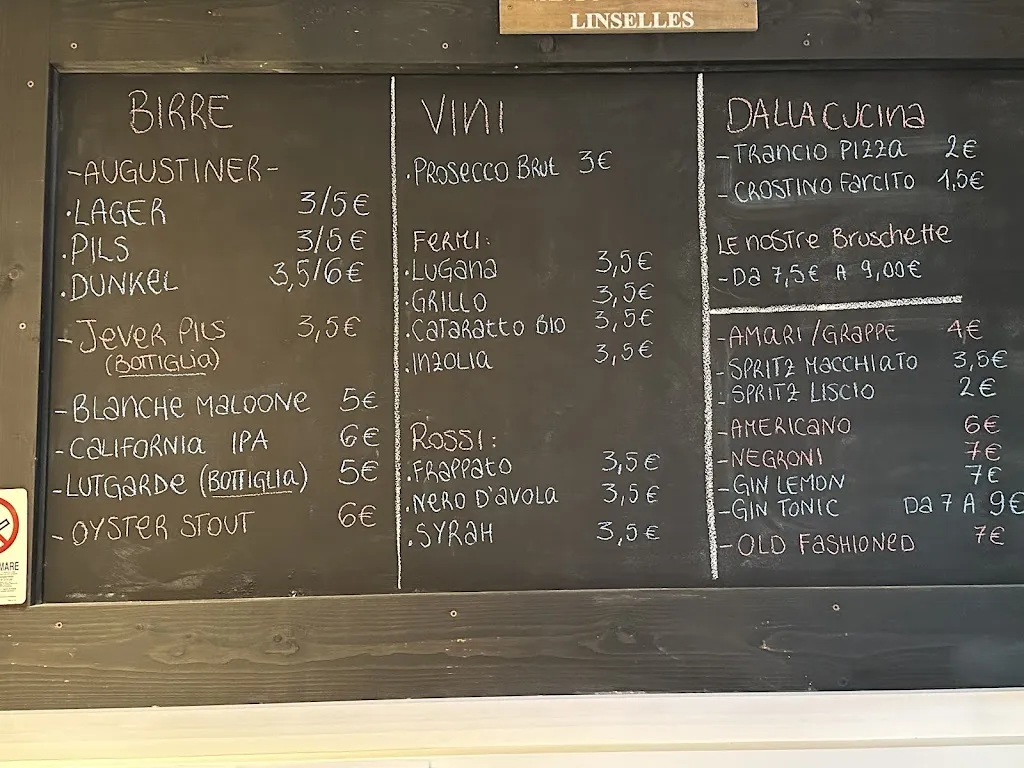 LINSELLES
BIRRE
-AUGUSTINER-
·LAGER 3/5€
·PILS 3/5€
·DUNKEL 3,5/6€
- JEVER PILS 3,5€
(BOTTIGLIA)
-BLANCHE MALOONE 5€
-CALIFORNIA IPA 6€
-LUTGARDE (BOTTIGLIA) 5€
- OYSTER STOUT 6€
VINI
·PROSECCO BRUT 3€
FERMI:
·LUGANA 3,5€
·GRILLO 3,5€
·CATARATTO BIO 3,5€
·INZOLIA 3,5€
ROSSI:
·FRAPPATO 3,5€
·NERO D'AVOLA 3,5€
·SYRAH 3,5€
DALLA CUCINA
-TRANCIO PIZZA 2€
-CROSTINO FARCITO 1,5€
LE NOSTRE BRUSCHETTE
-DA 7,5€ A 9,00€
-AMARI/GRAPPE 4€
-SPRITZ MACCHIATO 3,5€
-SPRITZ LISCIO 2€
-AMERICANO 6€
-NEGRONI 7€
-GIN LEMON 7€
-GIN TONIC DA 7 A 9€
-OLD FASHIONED 7€
MARE